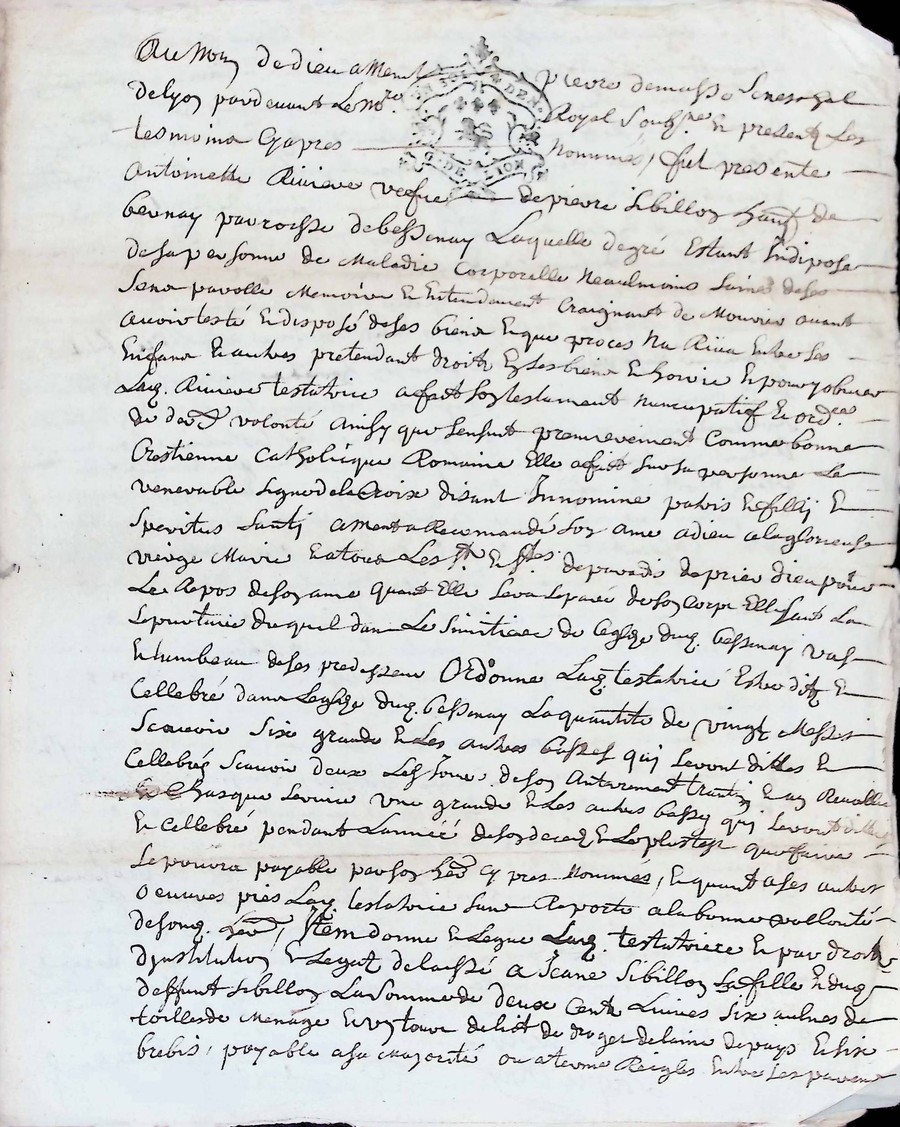 Au Nom de dieu amen
pierre demasso Seneschal
de lyon pardevant le no.re Royal Soubs.ne En presence Les
tesmoins Cyapres Nommés, fut presente
Antoinette Riviere vefve de pierre Sibillon hant de
bernay parroisse de bessenay Laquelle de gré Estant Indispose
de sa personne de Maladie Corporelle Neaulmoins Saine de ses
Sens parolle Memoire Et Entendement Craignant de Mourir avant
avoir testé Et disposé de ses biens Et que proces Na Rива Entre ses
Enfans Et autres pretendant droitz En ses biens Et hoirie Et pour y obvier
Lad. Riviere testatrice a fait son testament nuncupatif Et ord.ce
de der.e volonté ainsy que sensuit premierement Comme bonne
Crestienne Catholicque Romaine Elle a fait sur sa personne Le
venerable signe de la Croix disant In nomine patris Et fillij Et
speritus santi amen a Recomandé son ame a dieu a la glorieuse
vierge Marie Et a tous Les S.ts Et S.tes de paradis de prier dieu pour
Le Repos de son ame quant Elle sera separé de son Corps Elisant La
sepulture duquel dans Le Simitiere de Leglize dud. bessenay
Et tumbeau de ses predesseur Ordonne Lad. testatrice Estre ditz Et
Cellebré dans Leglize dud. bessenay La quantité de vingt Messes
Scavoir six grande Et Les autres basses qui seront dittes Et
Cellebrés Scavoir deux Les Jour de son Anterement trantin Et an Revollu
Et Chasque servise une grande Et Les autres basses qui seront dittes
Et Cellebré pendant Lannéé de son deces Et Le plustost que faire
se pourra payable par son her. Cy pres Nommés, Et quant a ses autres
Oeuvres pies Lad. testatrice sans Raporte a la bonne vollonté
de sond. her. Item donne Et Legue Lad. testatriere Et par droitz
dinstitution Et Legat delaissé a Jeane Sibillon sa fille Et dud.
deffunt Sibillon La Somme de deux Centz Livres six aulnes de
toilles de Menage Et un tour de lict de droget de laine de pays Et six
brebis, payable a sa Majorité ou a terme Reigles Entre ses parens